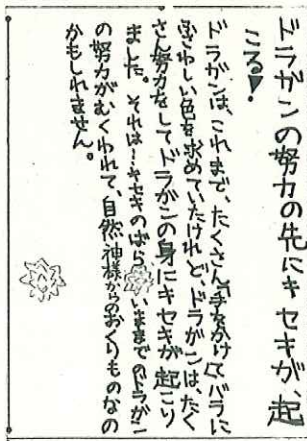 ドラガンの努力の先にキセキが、起
こる!
ドラガンは、これまで、たくさん手をかけてバラに
ふさわしい色を求めていたけれど、ドラガンは、たく
さん努力をしてドラガンの身にキセキが起こり
ました。それは!キセキのばら。いままでのドラガン
の努力がむくわれて、自然神様からのおくりものなの
かもしれません。